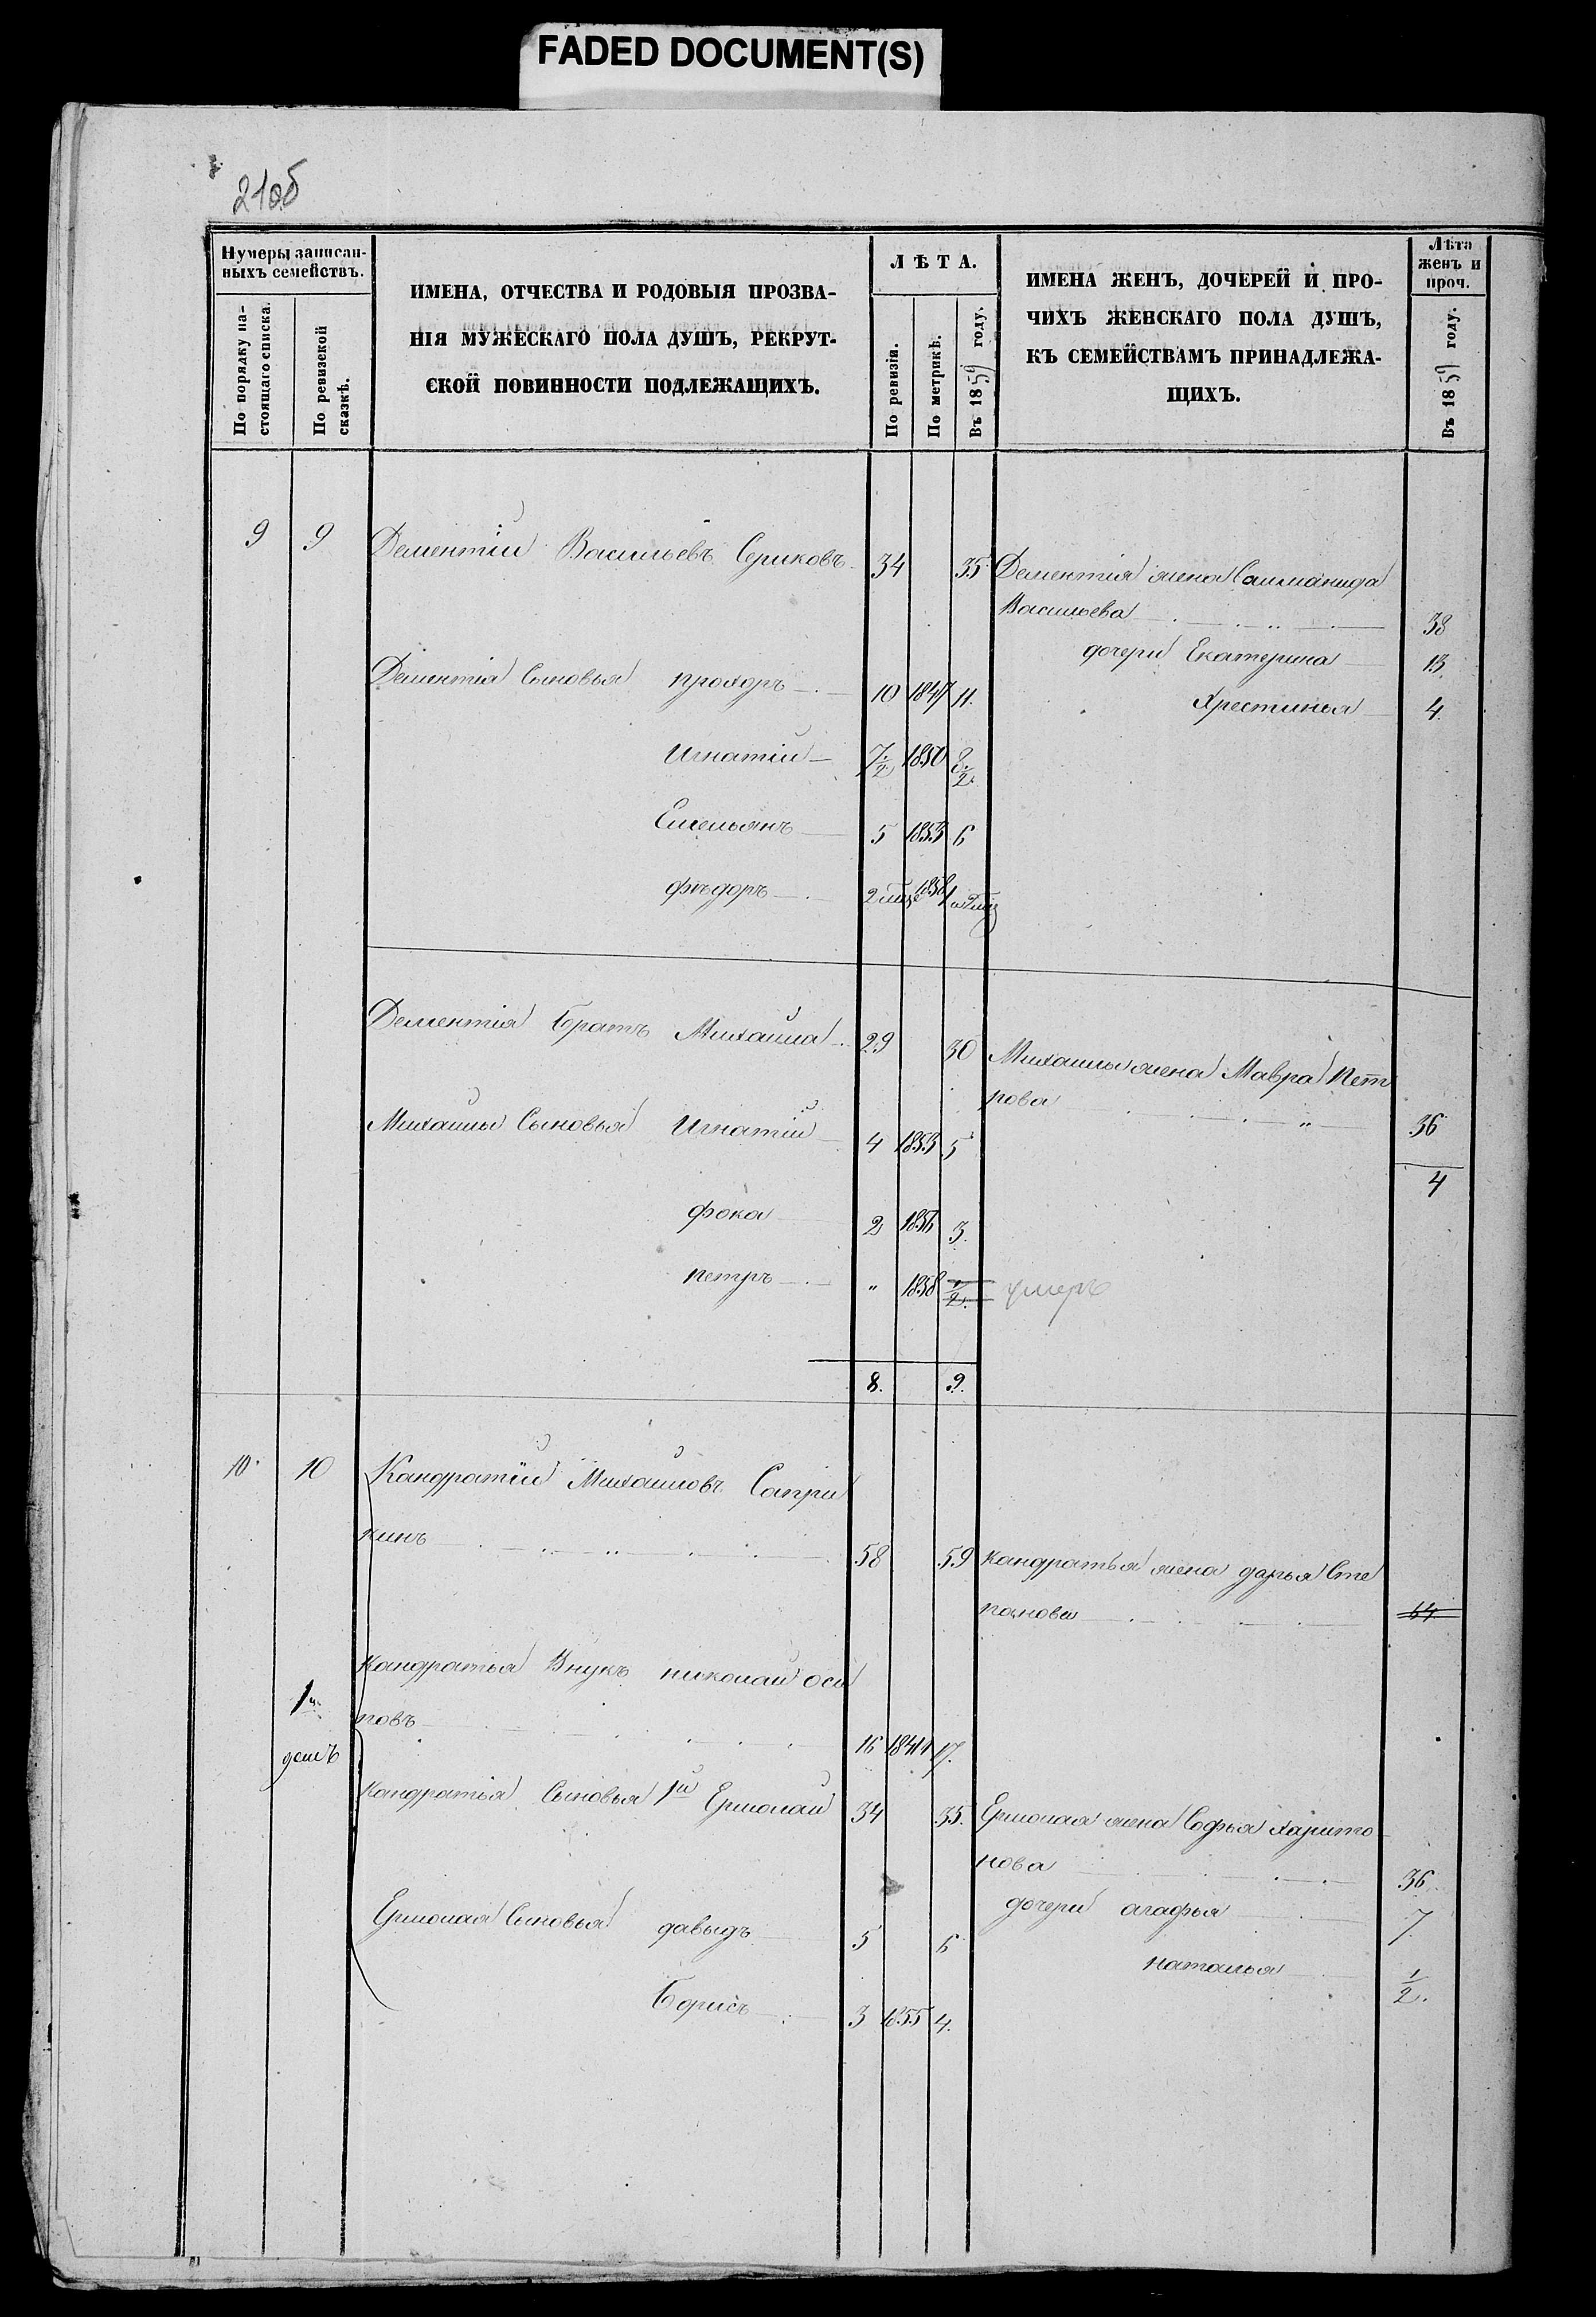 FADED DOCUMENT(S)
210б
Нумеры записан-
ныхъ семействъ.
По порядку на-
стоящаго списка.
По ревизской
сказкѣ.
ИМЕНА, ОТЧЕСТВА И РОДОВЫЯ ПРОЗВА-
НІЯ МУЖЕСКАГО ПОЛА ДУШЪ, РЕКРУТ-
СКОЙ ПОВИННОСТИ ПОДЛЕЖАЩИХЪ.
ЛѢТА.
По ревизіи.
По метрикѣ.
Въ 1859 году.
ИМЕНА ЖЕНЪ, ДОЧЕРЕЙ И ПРО-
ЧИХЪ ЖЕНСКАГО ПОЛА ДУШЪ,
КЪ СЕМЕЙСТВАМЪ ПРИНАДЛЕЖА-
ЩИХЪ.
Лѣта
женъ и
проч.
Въ 1859 году.
9 9 Дементій Васильевъ Сериковъ 34 35 Дементія жена
Васильева 38
дочери Екатерина 13
Дементія Сыновья прохоръ 10 1847 11. Хрестинья 4.
Игнатій 7 1/2 1850 8 1/2.
Емельянъ 5 1853 6
фѣдоръ 2 1858 1
Дементія братъ Михайла 29 30 Михайлы жена Мавра Пет
рова 36
Михайлы Сыновья Игнатій 4 1853 5
4
фока 2 1856 3.
петръ " 1858 1/2. умеръ
8. 9.
10 10 Кандратій Михайловъ Сапри
кинъ 58 59 кандратья жена дарья Сте
панова 64
Кандратья Внукъ николай оси
1й
повъ 16 1841 17.
домъ
кандратія Сыновья 1й Ермолай 34 35. Ермолая жена Софья харито
нова 36
Ермолая Сыновья давыдъ 5 6 дочери агафья 7
наталья 1/2.
Борисъ 3 1855 4.